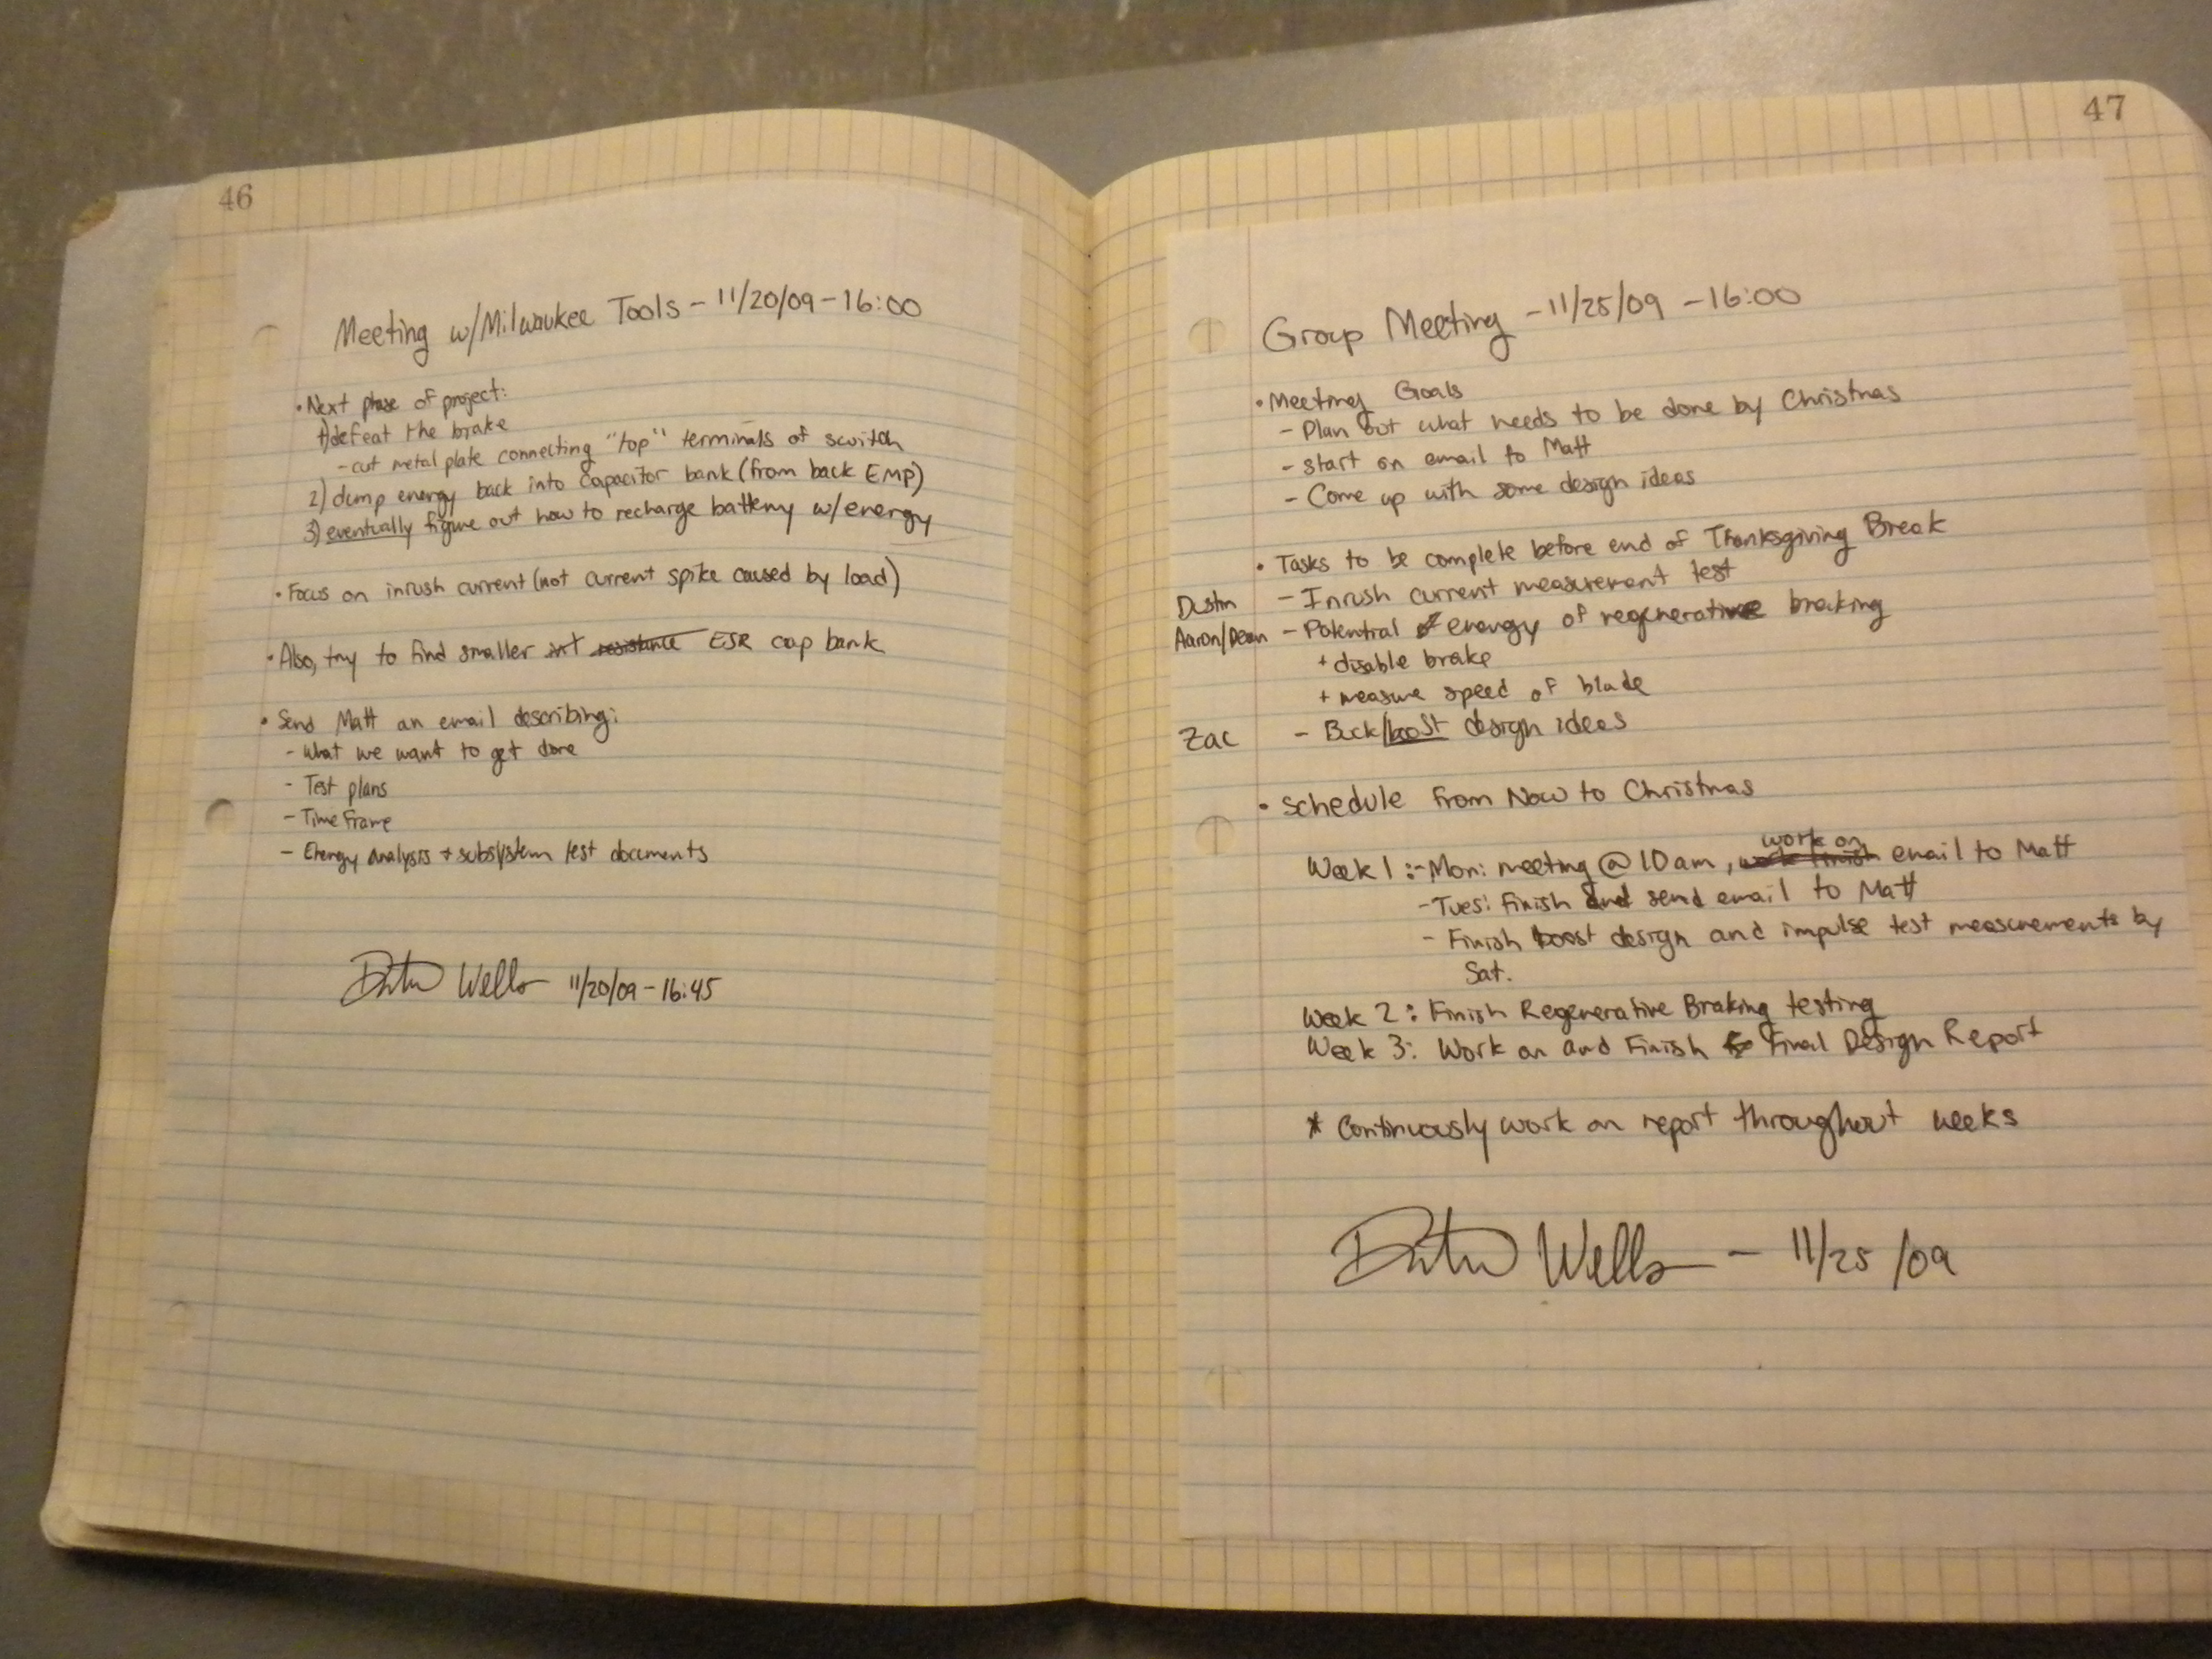 46
Meeting w/Milwaukee Tools - 11/20/09 - 16:00
• Next phase of project:
1) defeat the brake
- cut metal plate connecting "top" terminals of switch
2) dump energy back into capacitor bank (from back EMF)
3) eventually figure out how to recharge battery w/energy
• Focus on inrush current (not current spike caused by load)
• Also, try to find smaller int resistance ESR cap bank
• Send Matt an email describing:
- What we want to get done
- Test plans
- Time Frame
- Energy Analysis + subsystem test documents
Dustin Wells 11/20/09 - 16:45
47
Group Meeting - 11/25/09 - 16:00
• Meeting Goals
- Plan out what needs to be done by Christmas
- start on email to Matt
- Come up with some design ideas
• Tasks to be complete before end of Thanksgiving Break
Dustin - Inrush current measurement test
Aaron/Dean - Potential energy of regenerative breaking
+ disable brake
+ measure speed of blade
Zac - Buck/boost design ideas
• Schedule from Now to Christmas
work on
Week 1: - Mon: meeting @ 10am, work finish email to Matt
- Tues: Finish and send email to Matt
- Finish boost design and impulse test measurements by
Sat.
Week 2: Finish Regenerative Braking testing
Week 3: Work on and Finish Final Design Report
* Continuously work on report throughout weeks
Dustin Wells - 11/25/09